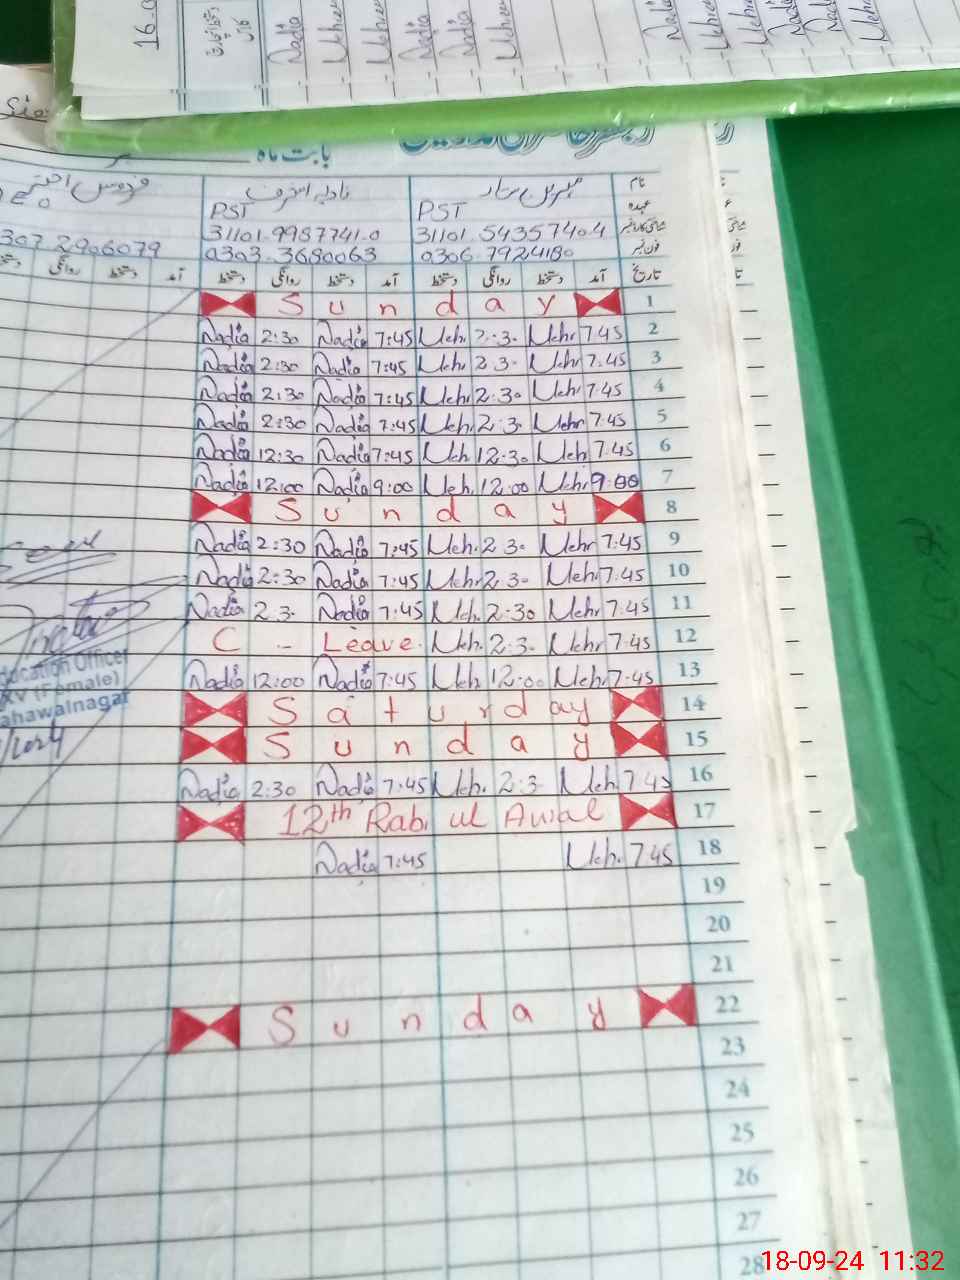 16.
Nadia
Nadia
Nadia
بابت ماہ
نام
PST PST
عہدہ
31101.9987741.0 31101.5435740.4
شناختی کارڈ نمبر
307 2906079 0303.3680063 0306.7924180
فون نمبر
آمد دستخط روانگی دستخط آمد دستخط روانگی دستخط آمد تاریخ
S u n d a y 1
Nadia 2:30 Nadia 7:45 Meh. 2:3. Mehr 7.45 2
Nadia 2:30 Nadia 7:45 Meh. 2 3. Mehr 7.45 3
Nadia 2:30 Nadia 7:45 Meh. 2:30 Mehr 7.45 4
Nadia 2:30 Nadia 7:45 Meh. 2:3. Mehr 7.45 5
Nadia 12:30 Nadia 7:45 Meh 12:30 Mehr 7.45 6
Nadia 12:00 Nadia 9:00 Meh. 12:00 Mehr 9:00 7
S u n d a y 8
Nadia 2:30 Nadia 7:45 Meh. 2 3. Mehr 7:45 9
Nadia 2:30 Nadia 7:45 Meh 2:3. Mehr 7.45 10
Nadia 2 3. Nadia 7:45 Meh. 2:30 Mehr 7.45 11
C - Leave. Meh. 2:3. Mehr 7.45 12
Nadia 12:00 Nadia 7:45 Meh 12:00 Mehr 7.45 13
Education Officer
(Female)
Bahawalnagar
S a t u r d a y 14
S u n d a y 15
Nadia 2:30 Nadia 7:45 Meh. 2:3 Meh 7.45 16
12th Rabi ul Awal 17
Nadia 7:45 Meh. 7.45 18
19
20
21
S u n d a y 22
23
24
25
26
27
28
18-09-24 11:32